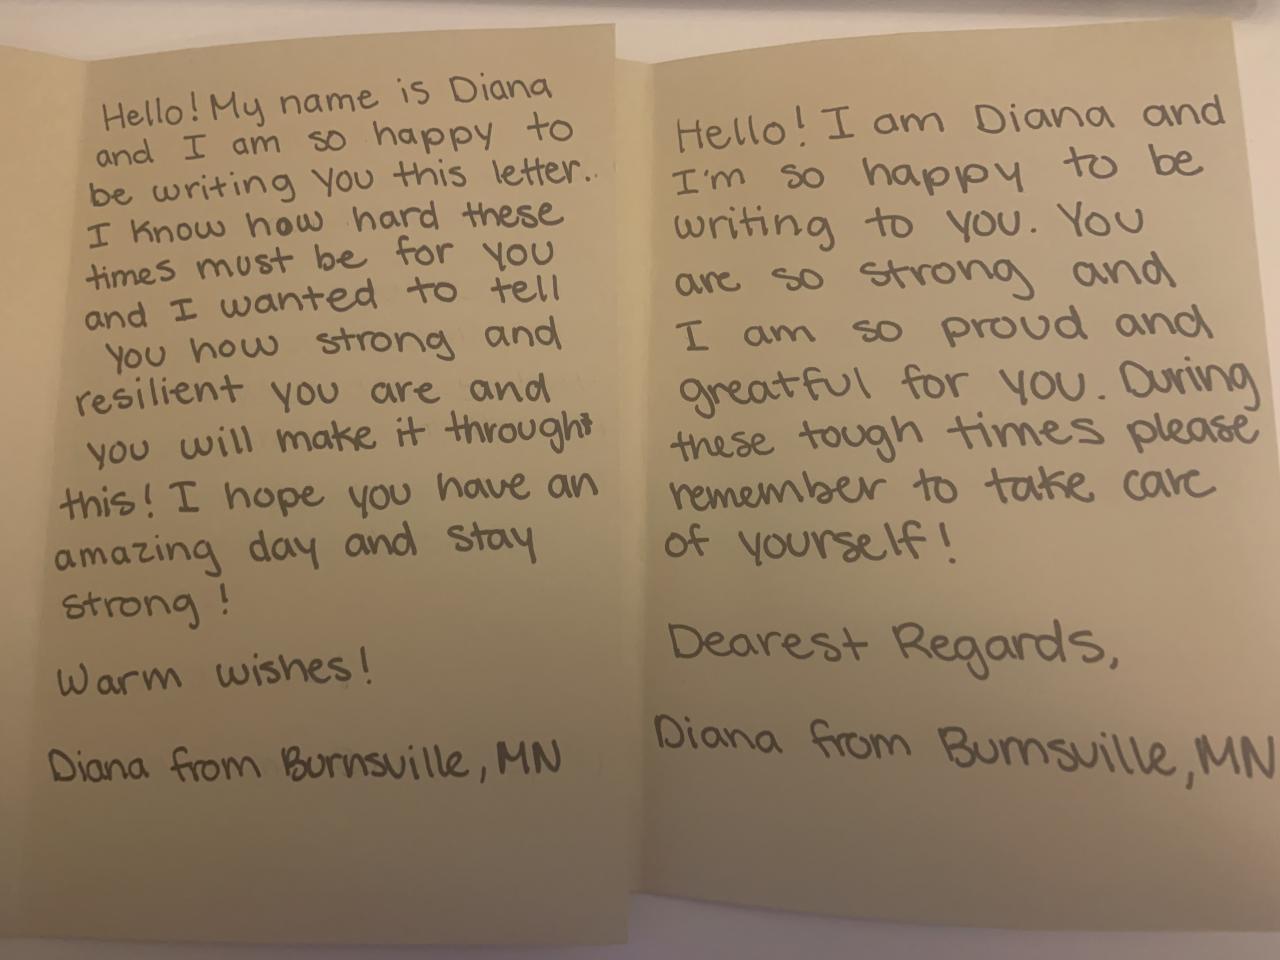 Hello! My name is Diana
and I am so happy to
be writing you this letter.
I know how hard these
times must be for you
and I wanted to tell
you how strong and
resilient you are and
you will make it through
this! I hope you have an
amazing day and stay
strong!
Warm wishes!
Diana from Burnsville, MN
Hello! I am Diana and
I'm so happy to be
writing to you. You
are so strong and
I am so proud and
greatful for you. During
these tough times please
remember to take care
of yourself!
Dearest Regards,
Diana from Burnsville, MN